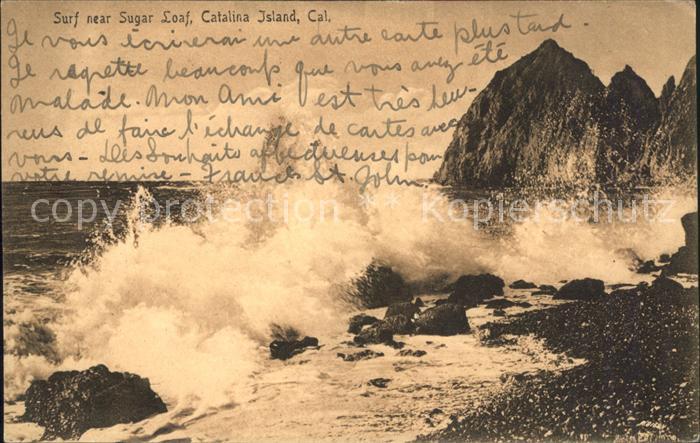 Surf near Sugar Loaf, Catalina Island, Cal.
Je vous écrirerai une autre carte plus tard.
Je regrette beaucoup que vous avez été
malade. Mon Ami est très heu-
reus de faire l'échange de cartes avec
vous - Les Souhaits affectueuses pour
votre remise - Francis St. John.
copy protection ** Kopier-Schutz